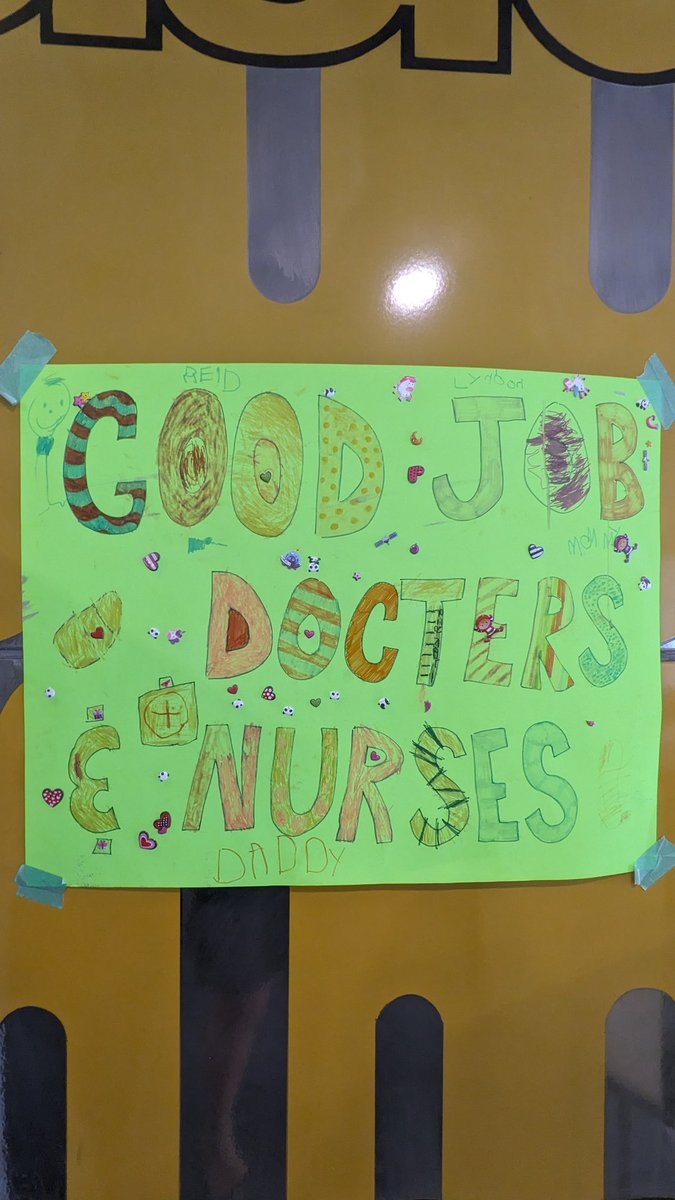 REID Lyndon
GOOD JOB
MOMMY
DOCTERS
& NURSES
DADDY